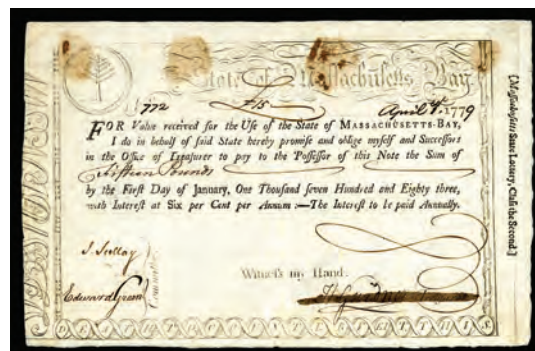 State of Massachusetts Bay
772 £15 April 1779
FOR Value received for the Use of the State of MASSACHUSETTS-BAY,
I do in behalf of said State hereby promise and oblige myself and Successors
in the Office of Treasurer to pay to the Possessor of this Note the Sum of
Fifteen Pounds
by the First Day of January, One Thousand seven Hundred and Eighty three,
with Interest at Six per Cent per Annum :—The Interest to be paid Annually.
Witness my Hand.
Committee
[Massachusetts State Lottery, Class the Second.]